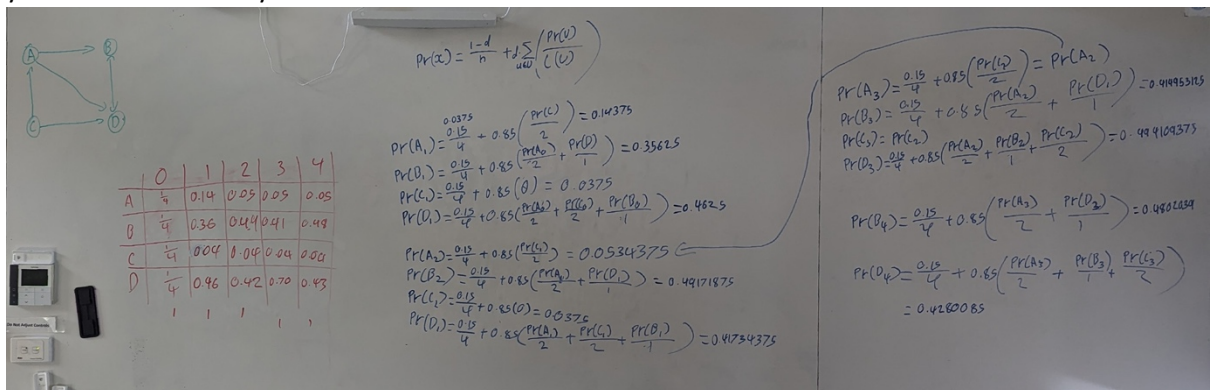 A B
C D
0 1 2 3 4
A 1/4 0.14 0.05 0.05 0.05
B 1/4 0.36 0.44 0.41 0.48
C 1/4 0.04 0.04 0.04 0.04
D 1/4 0.46 0.42 0.50 0.43
1 1 1 1 1
Pr(x) = (1-d)/n + d·∑u∈U (Pr(U)/L(U))
0.0375
Pr(A₁) = 0.15/4 + 0.85(Pr(C)/2) = 0.14375
Pr(B₁) = 0.15/4 + 0.85(Pr(A₀)/2 + Pr(D)/1) = 0.35625
Pr(C₁) = 0.15/4 + 0.85(0) = 0.0375
Pr(D₁) = 0.15/4 + 0.85(Pr(A₀)/2 + Pr(C₀)/2 + Pr(B₀)/1) = 0.4625
Pr(A₂) = 0.15/4 + 0.85(Pr(C₁)/2) = 0.0534375
Pr(B₂) = 0.15/4 + 0.85(Pr(A₁)/2 + Pr(D₁)/1) = 0.49171875
Pr(C₂) = 0.15/4 + 0.85(0) = 0.0375
Pr(D₁) = 0.15/4 + 0.85(Pr(A₁)/2 + Pr(C₁)/2 + Pr(B₁)/1) = 0.41734375
Pr(A₃) = 0.15/4 + 0.85(Pr(C₂)/2) = Pr(A₂)
Pr(B₃) = 0.15/4 + 0.85(Pr(A₂)/2 + Pr(D₁)/1) = 0.414953125
Pr(C₃) = Pr(C₂)
Pr(D₃) = 0.15/4 + 0.85(Pr(A₂)/2 + Pr(B₂)/1 + Pr(C₂)/2) = 0.494109375
Pr(B₄) = 0.15/4 + 0.85(Pr(A₃)/2 + Pr(D₃)/1) = 0.4802039
Pr(D₄) = 0.15/4 + 0.85(Pr(A₃)/2 + Pr(B₃)/1 + Pr(C₃)/2)
= 0.4280085
Do Not Adjust Controls